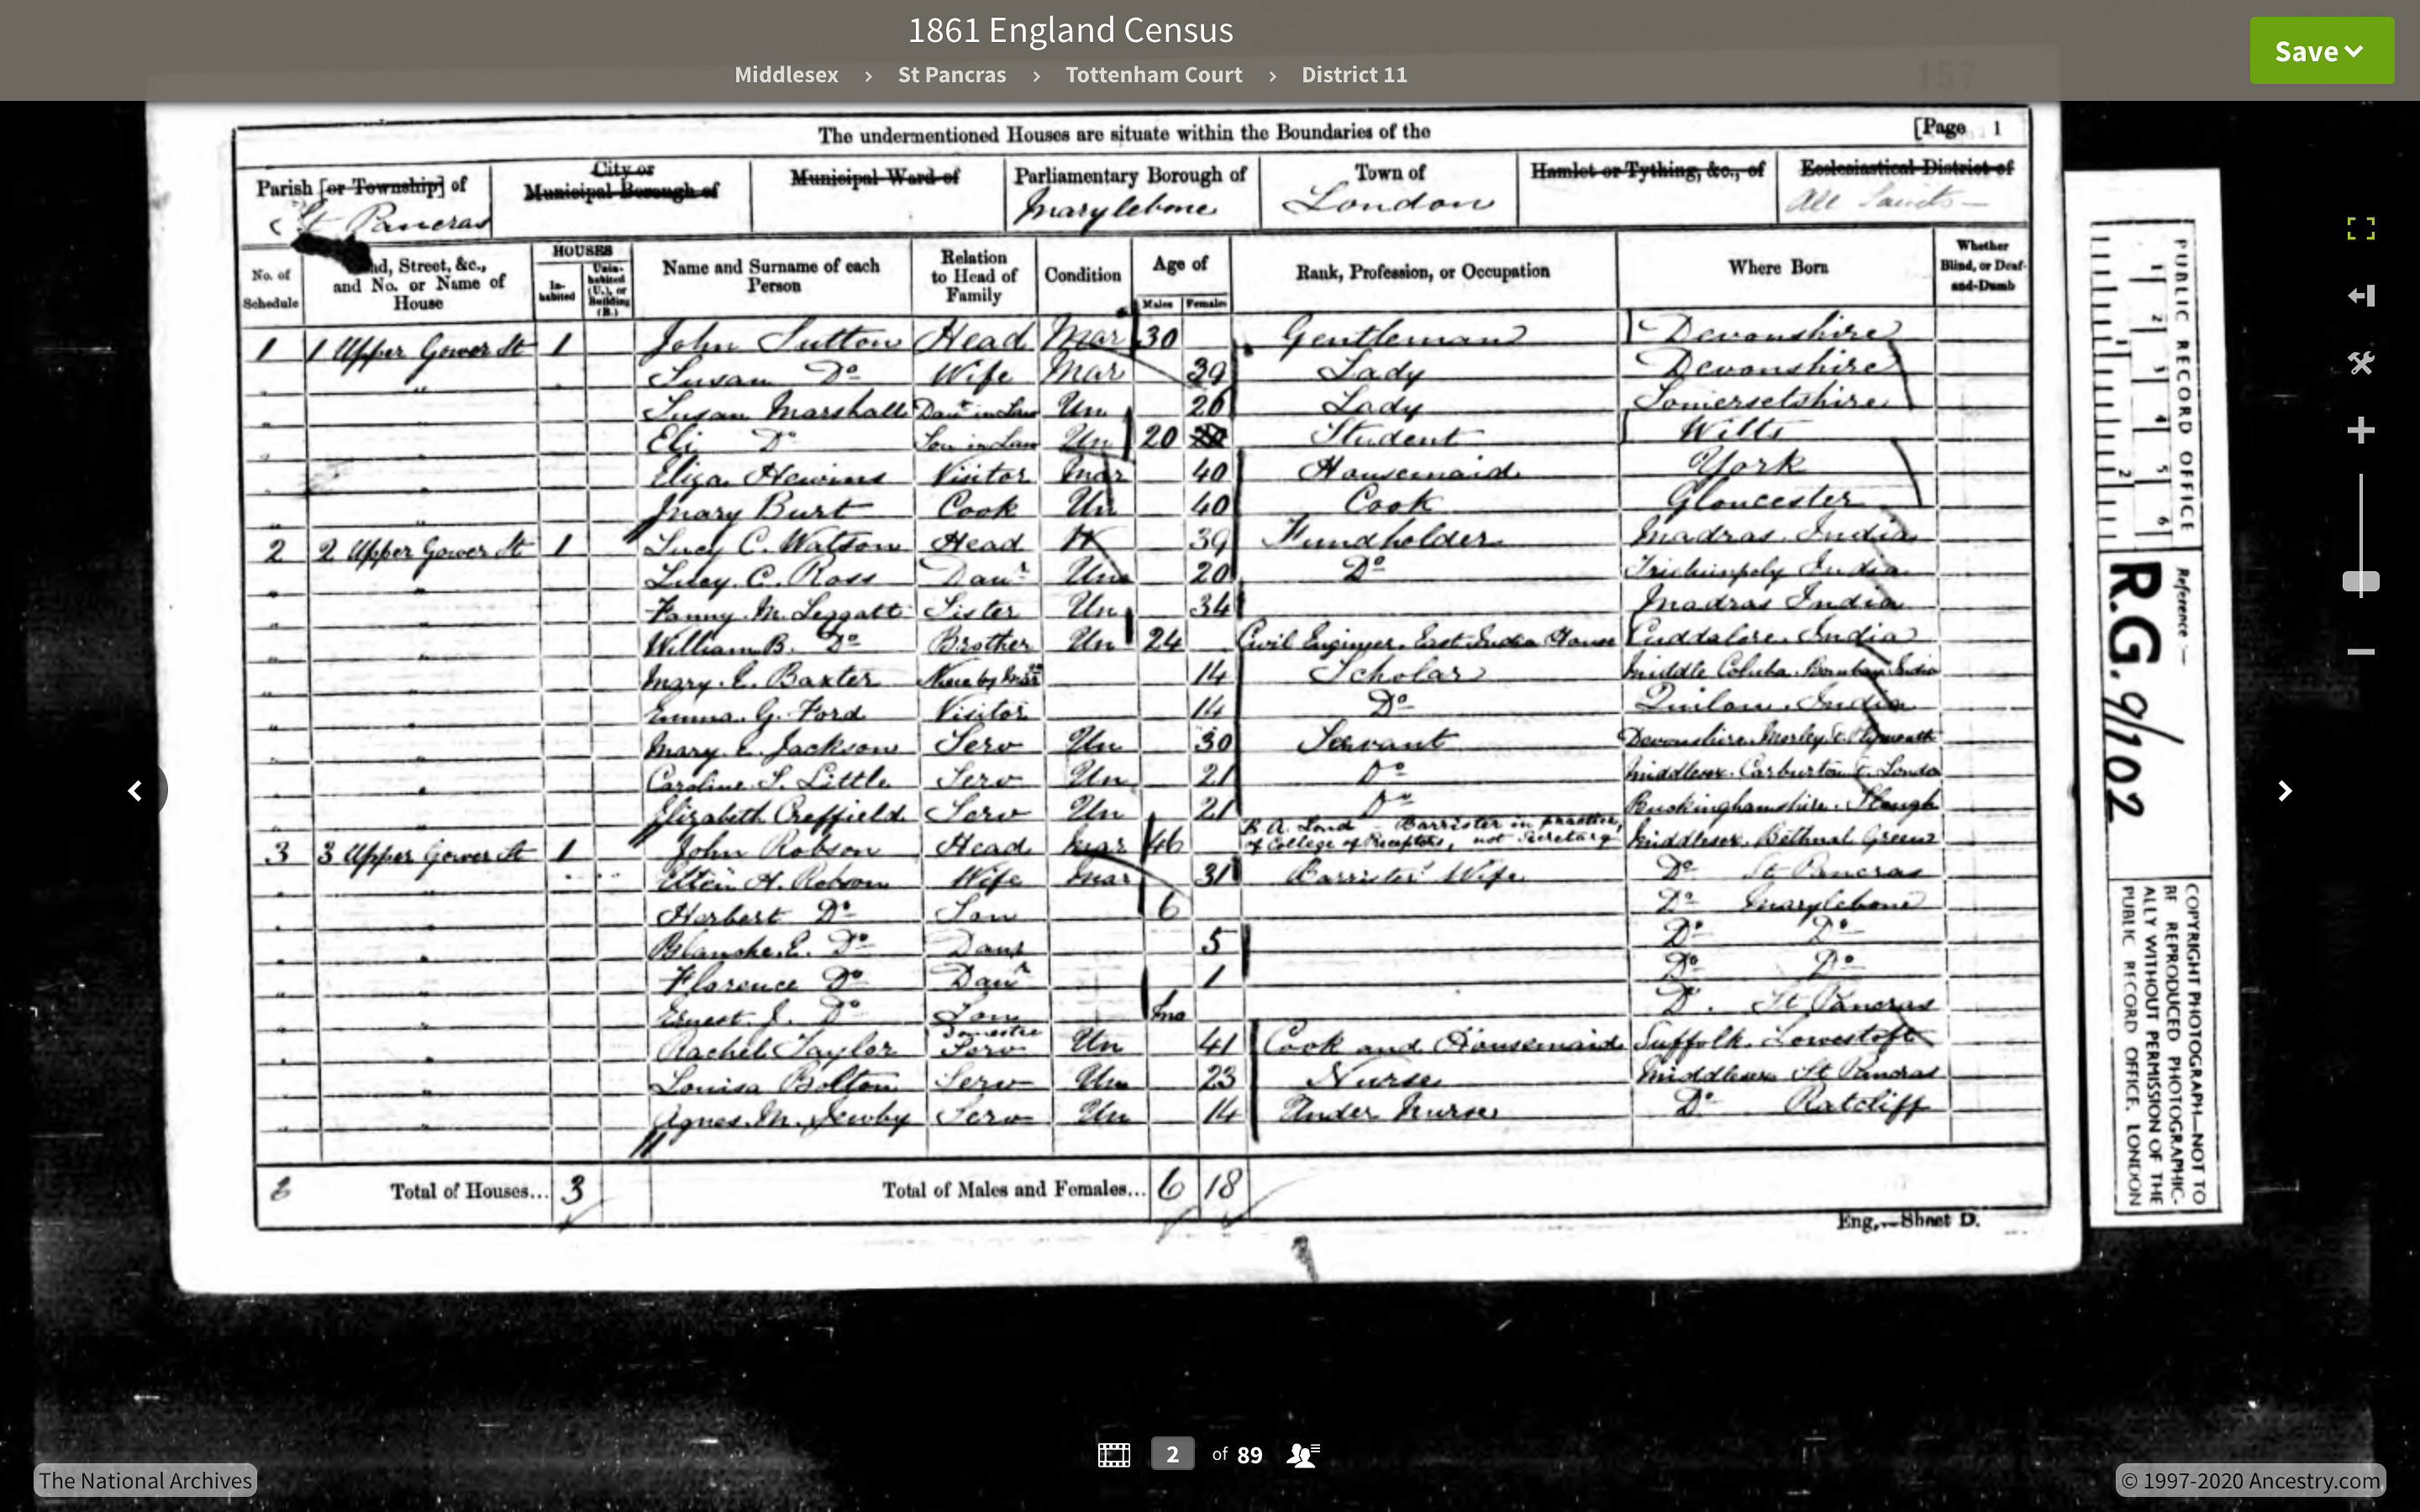 1861 England Census
Middlesex › St Pancras › Tottenham Court › District 11
Save
157
The undermentioned Houses are situate within the Boundaries of the [Page 1
Parish [or Township] of City or Municipal Borough of Municipal Ward of Parliamentary Borough of Town of Hamlet or Tything, &c., of Ecclesiastical District of
St Pancras Marylebone London All Saints
No. of Schedule Street, &c., and No. or Name of House HOUSES In-habited Unin-habited (U.), or Building (B.) Name and Surname of each Person Relation to Head of Family Condition Age of Males Females Rank, Profession, or Occupation Where Born Whether Blind, or Deaf-and-Dumb
1 1 Upper Gower St 1 John Sutton Head Mar 30 Gentleman Devonshire
" Susan Do Wife Mar 39 Lady Devonshire
" Susan Marshall Daur in Law Un 20 Lady Somersetshire
" Eli Do Son in Law Un 20 Student Wilts
" Eliza Hewins Visitor Mar 40 Housemaid York
" Mary Burt Cook Un 40 Cook Gloucester
2 2 Upper Gower St 1 Lucy C. Watson Head W 39 Fundholder Madras India
" Lucy C. Ross Daur Un 20 Do Trichinpoly India
" Fanny M. Leggatt Sister Un 34 Madras India
" William B. Do Brother Un 24 Civil Engineer, East India House Cuddalore, India
" Mary E. Baxter Niece by 14 Scholar Middle Colaba, Bombay India
" Emma G. Ford Visitor 14 Do Quilon, India
" Mary E. Jackson Serv Un 30 Servant Devonshire, Morley, Plymouth
" Caroline S. Little Serv Un 21 Do Middlesex, Carburton London
" Elizabeth Creffield Serv Un 21 Do Buckinghamshire, Slough
3 3 Upper Gower St 1 John Robson Head Mar 46 B.A. Lond Barrister in practice, of College of Preceptors, not Secretary Middlesex, Bethnal Green
" H. Robson Wife Mar 31 Barrister's Wife Do St Pancras
" Herbert Do Son 6 Do Marylebone
" Blanche E. Do Daur 5 Do Do
" Florence Do Daur 1 Do Do
" Ernest J. Do Son Mo D. St Pancras
" Rachel Taylor Domestic Serv Un 41 Cook and Housemaid Suffolk, Lowestoft
" Louisa Bolton Serv Un 23 Nurse Middlesex St Pancras
" Agnes M. Serv Un 14 Under Nurse Do Ratcliff
3 Total of Houses... 3 Total of Males and Females... 6 18
Eng.—Sheet D.
PUBLIC RECORD OFFICE
1 2 3 4 5 6
1 2
Reference :—
R.G. 9/102
COPYRIGHT PHOTOGRAPH—NOT TO
BE REPRODUCED PHOTOGRAPHIC-
ALLY WITHOUT PERMISSION OF THE
PUBLIC RECORD OFFICE, LONDON
2 of 89
The National Archives
© 1997-2020 Ancestry.com